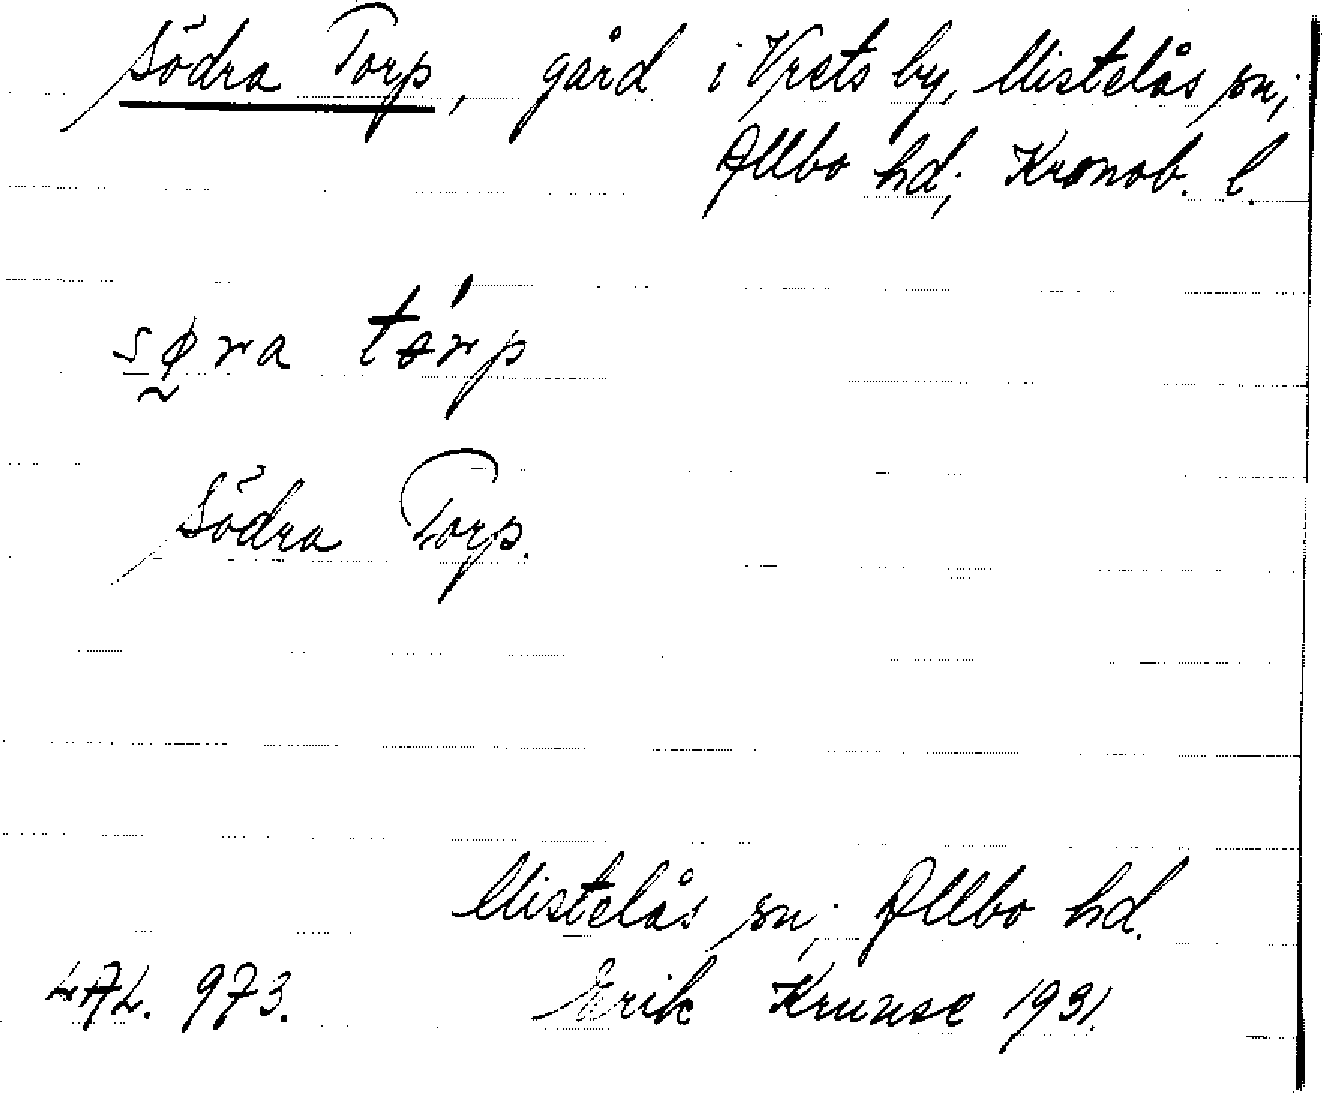 Södra Torp, gård i Vrets by, Mistelås sn;
Allbo hd; Kronob. l.
søra tɵrp
Södra Torp.
Mistelås sn; Allbo hd.
LAL. 973. Erik Kruuse 1931.